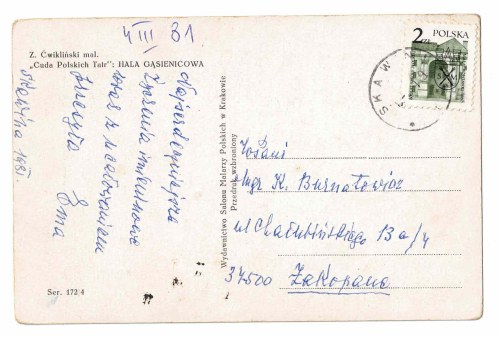 4 III 81
Z. Ćwikliński mal.
„Cuda Polskich Tatr”: HALA GĄSIENICOWA
Najserdeczniejsze
życzenia imieninowe
wraz z ucałowaniem
przesyła Ema
Skawina 1981.
Ser. 172/4
Wydawnictwo Salonu Malarzy Polskich w Krakowie
Przedruk wzbroniony
2 zł POLSKA
SKAW
Mgr K. Bernatowicz
ul Chałubińskiego 13a/4
34500 Zakopane